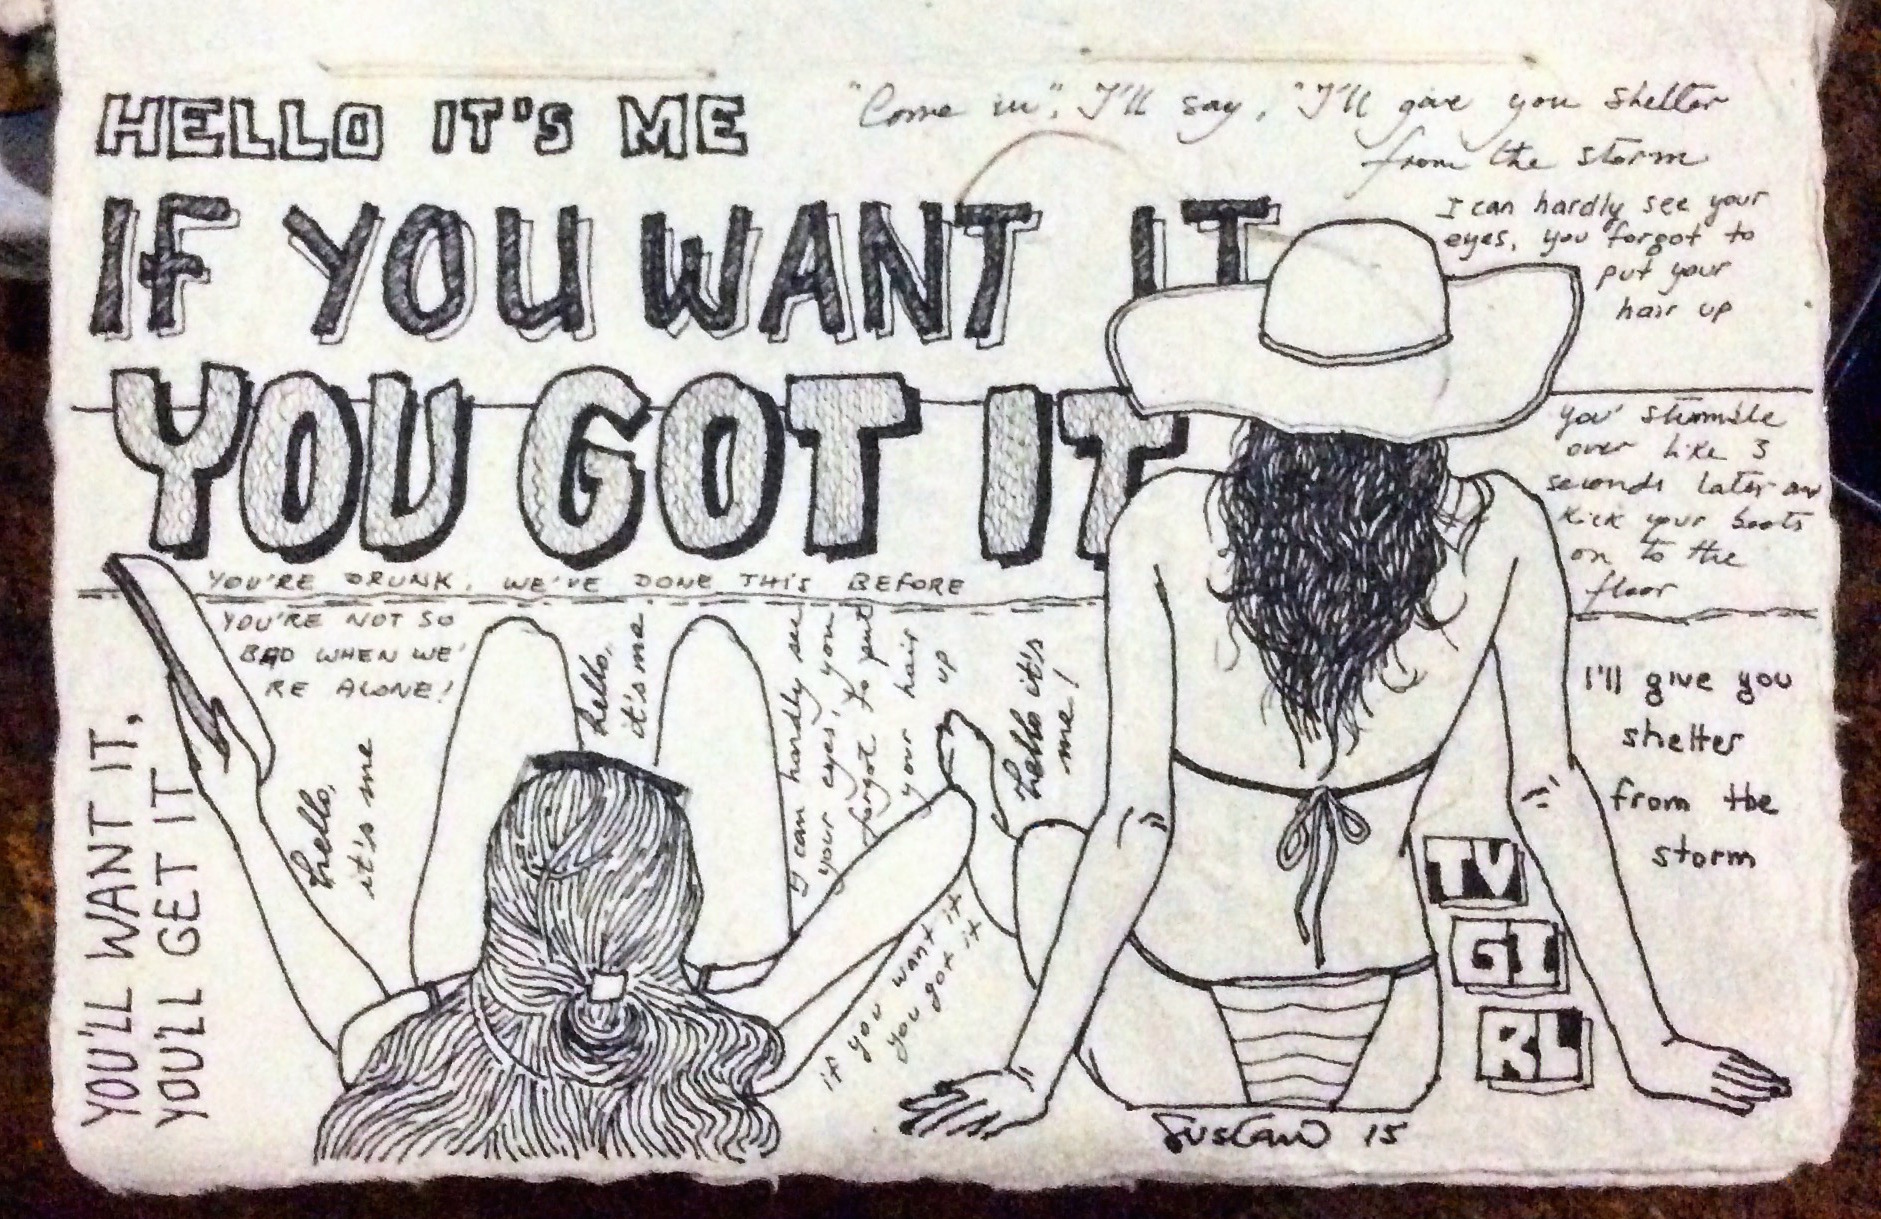 HELLO IT'S ME
"Come in", I'll say, "I'll give you shelter
from the storm
IF YOU WANT IT
I can hardly see your
eyes, you forgot to
put your
hair up
YOU GOT IT
You stumble
over like 3
seconds later an
kick your boots
on to the
floor
YOU'RE DRUNK, WE'VE DONE THIS BEFORE
YOU'RE NOT SO
BAD WHEN WE'
RE ALONE!
hello,
it's me
hello,
it's me
I can hardly see
your eyes, you
forgot to put
your hair
up
hello it's
me!
I'll give you
shelter
from the
storm
YOU'LL WANT IT,
YOU'LL GET IT
if you want it
you got it
TV
GI
RL
15